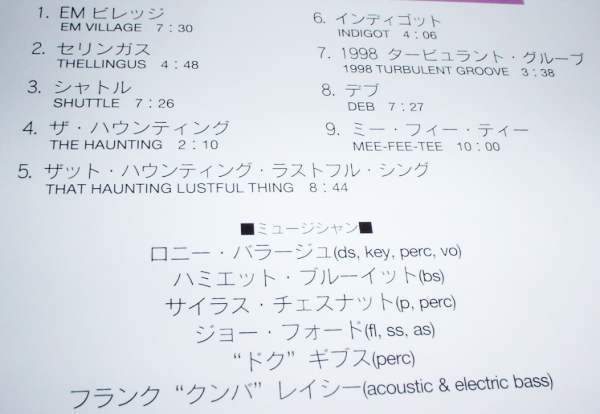 1. EM ビレッジ
EM VILLAGE 7:30
2. セリンガス
THELLINGUS 4:48
3. シャトル
SHUTTLE 7:26
4. ザ・ハウンティング
THE HAUNTING 2:10
5. ザット・ハウンティング・ラストフル・シング
THAT HAUNTING LUSTFUL THING 8:44
6. インディゴット
INDIGOT 4:06
7. 1998 タービュラント・グルーブ
1998 TURBULENT GROOVE 3:38
8. デブ
DEB 7:27
9. ミー・フィー・ティー
MEE-FEE-TEE 10:00
■ミュージシャン■
ロニー・バラージュ(ds, key, perc, vo)
ハミエット・ブルーイット(bs)
サイラス・チェスナット(p, perc)
ジョー・フォード(fl, ss, as)
“ドク” ギブス(perc)
フランク “クンバ” レイシー(acoustic & electric bass)